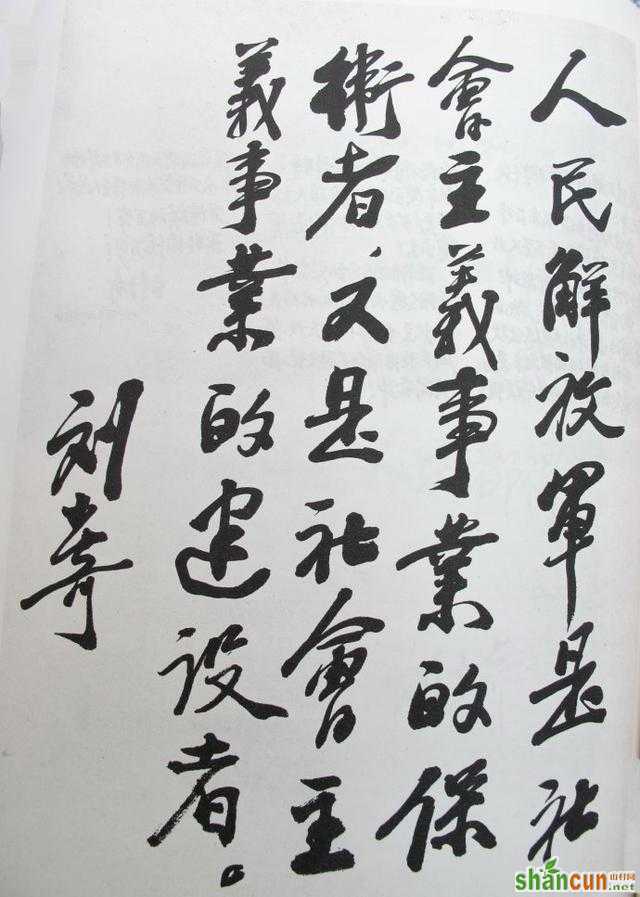 人民解放軍是社
會主義事業的保
衛者、又是社會主
義事業的建设者。
刘少奇
shancun
山村网
.net